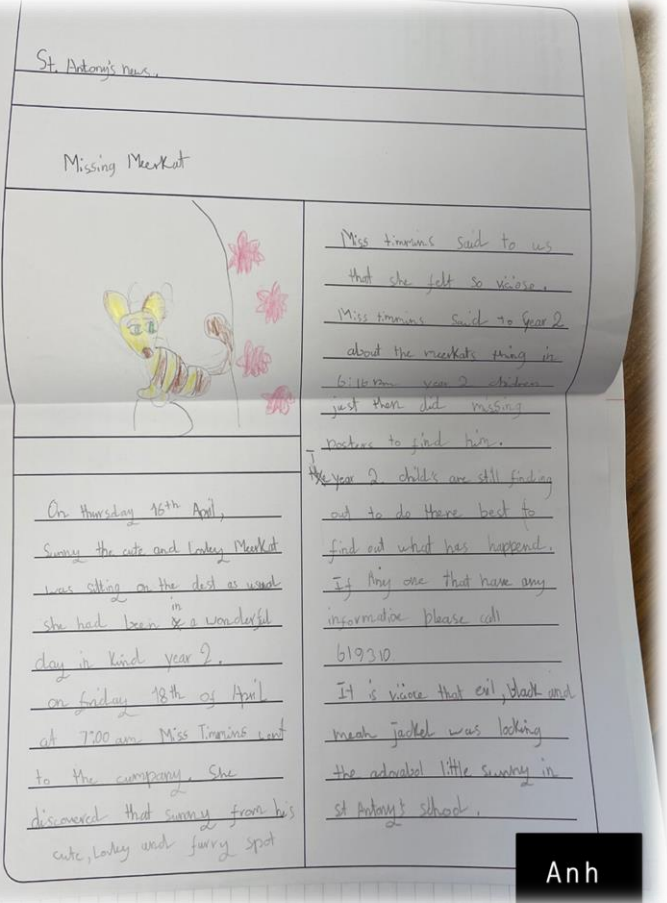 St. Antony's news.
Missing Meerkat
On thursday 16th April,
Sunny the cute and Lovley Meerkat
was sitting on the dest as usual
she had been in a wonderful
day in Kind year 2.
on friday 18th of April
at 7:00 am Miss Timmins went
to the cumpany. She
discovered that sunny from his
cute, Lovley and furry spot
Miss timmins said to us
that she felt so viciose.
Miss timmins said to Year 2
about the meerkats thing in
6:16 year 2 children
just then did missing
posters to find him.
year 2. child's are still finding
out to do there best to
find out what has happend.
If Any one that have any
informatioe please call
619310
It is viciose that evil, black and
mean jackel was looking
the adorabol little sunny in
st Antony's school.
Anh